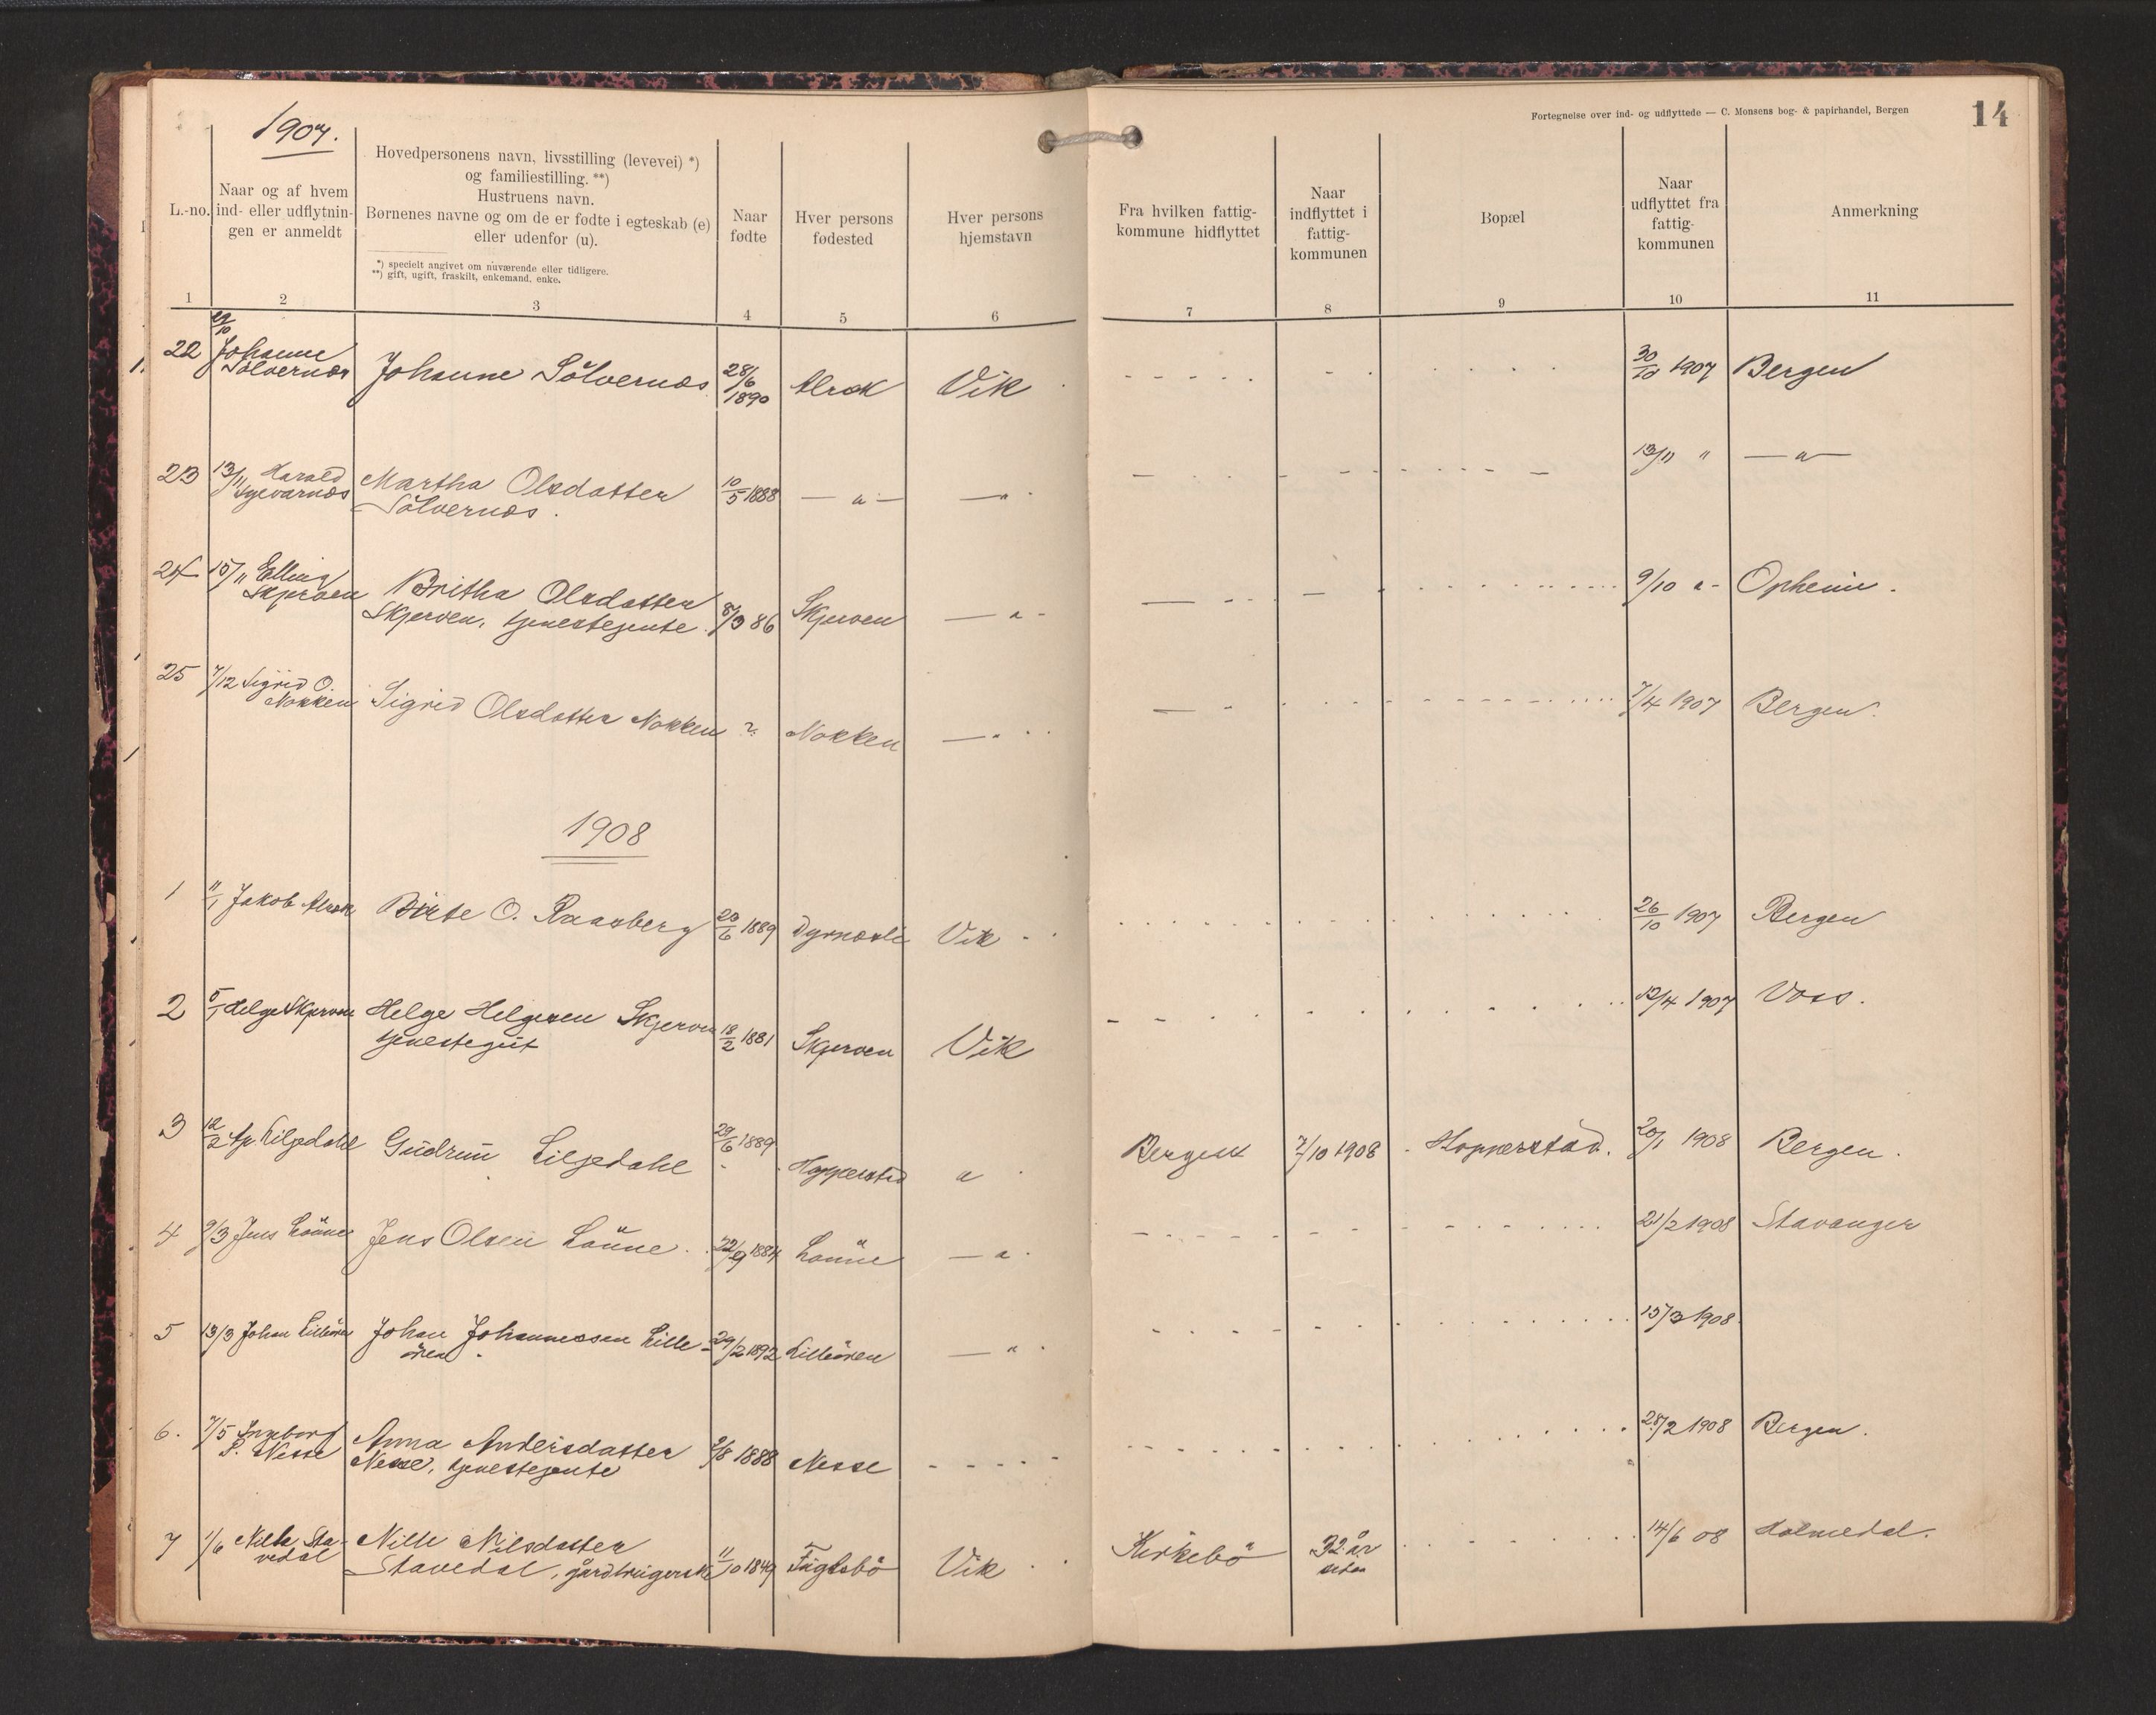 1907.
Fortegnelse over ind- og udflyttede — C. Monsens bog- & papirhandel, Bergen
14
L.-no.
Naar og af hvem
ind- eller udflytnin-
gen er anmeldt
Hovedpersonens navn, livsstilling (levevei) *)
og familiestilling. **)
Hustruens navn.
Børnenes navne og om de er fødte i egteskab (e)
eller udenfor (u).
*) specielt angivet om nuværende eller tidligere.
**) gift, ugift, fraskilt, enkemand, enke.
Naar
fødte
Hver persons
fødested
Hver persons
hjemstavn
Fra hvilken fattig-
kommune hidflyttet
Naar
indflyttet i
fattig-
kommunen
Bopæl
Naar
udflyttet fra
fattig-
kommunen
Anmerkning
1 2 3 4 5 6 7 8 9 10 11
22 Johanne
Sölvernæs
Johanne Sölvernæs 28/6
1890
Vik 30/10 1907 Bergen
23 13/11 Harald
Martha Olsdatter
Sölvernæs.
10/5 1888 — " — — " 13/11 " — " —
24 15/11 Elling
Skjerven
Britha Olsdatter
Skjerven, tjenestejente. 8/3 86 Skjerven — " - 9/10 " - Opheim.
25 7/12 Sigrid O.
Nokken
Sigrid Olsdatter Nokken ? Nokken — " 7/4 1907 Bergen.
1908
1 11/1 Jakob
Brite O. 20/6 1889 Dyrnæsli Vik 26/10 1907 Bergen
2 5/1 Helge Skjerven Helge Helgesen Skjerven
tjenestegut
18/2 1881 Skjerven Vik 12/4 1907 Voss.
3 12/2 Liljedahl Gudrun Liljedahl 29/6 1889 Hopperstad " Bergen 7/10 1908 Hopperstad. 20/1 1908 Bergen.
4 9/3 Jens Lönne Jens Olsen Lönne. 22/9 1884 Lönne — " 21/2 1908 Stavanger
5 13/3 Johan Lilleören Johan Johannessen Lille-
ören
29/2 1892 Lilleören — " 15/3 1908.
6. 7/5 Inneborg
P. Nesse
Anna Andersdatter
Nesse, tjenestejente
9/8 1888 Nesse 28/2 1908 Bergen.
7 1/6 Nille Sta-
vedal
Nille Nilsdatter
Stavedal, gårdbrugerske
11/10 1849 Fuglsbö Vik Kirkebö 32 år
siden
14/6 08 Holmedal.